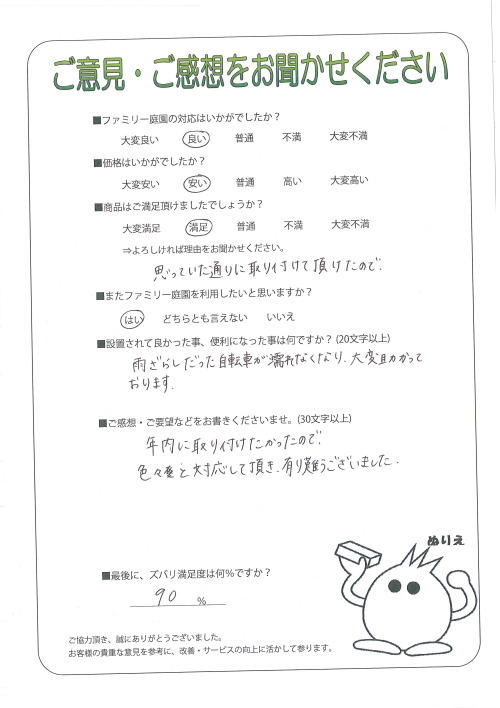 ご意見・ご感想をお聞かせください
■ファミリー庭園の対応はいかがでしたか?
大変良い 良い 普通 不満 大変不満
■価格はいかがでしたか?
大変安い 安い 普通 高い 大変高い
■商品はご満足頂けましたでしょうか?
大変満足 満足 普通 不満 大変不満
⇒よろしければ理由をお聞かせください。
思っていた通りに取り付けて頂けたので、
■またファミリー庭園を利用したいと思いますか?
はい どちらとも言えない いいえ
■設置されて良かった事、便利になった事は何ですか?(20文字以上)
雨ざらしだった自転車が濡れなくなり、大変助かって
おります。
■ご感想・ご要望などをお書きくださいませ。(30文字以上)
年内に取り付けたかったので、
色々と対応して頂き、有り難うございました。
ぬりえ
■最後に、ズバリ満足度は何%ですか?
90 %
ご協力頂き、誠にありがとうございました。
お客様の貴重な意見を参考に、改善・サービスの向上に活かして参ります。